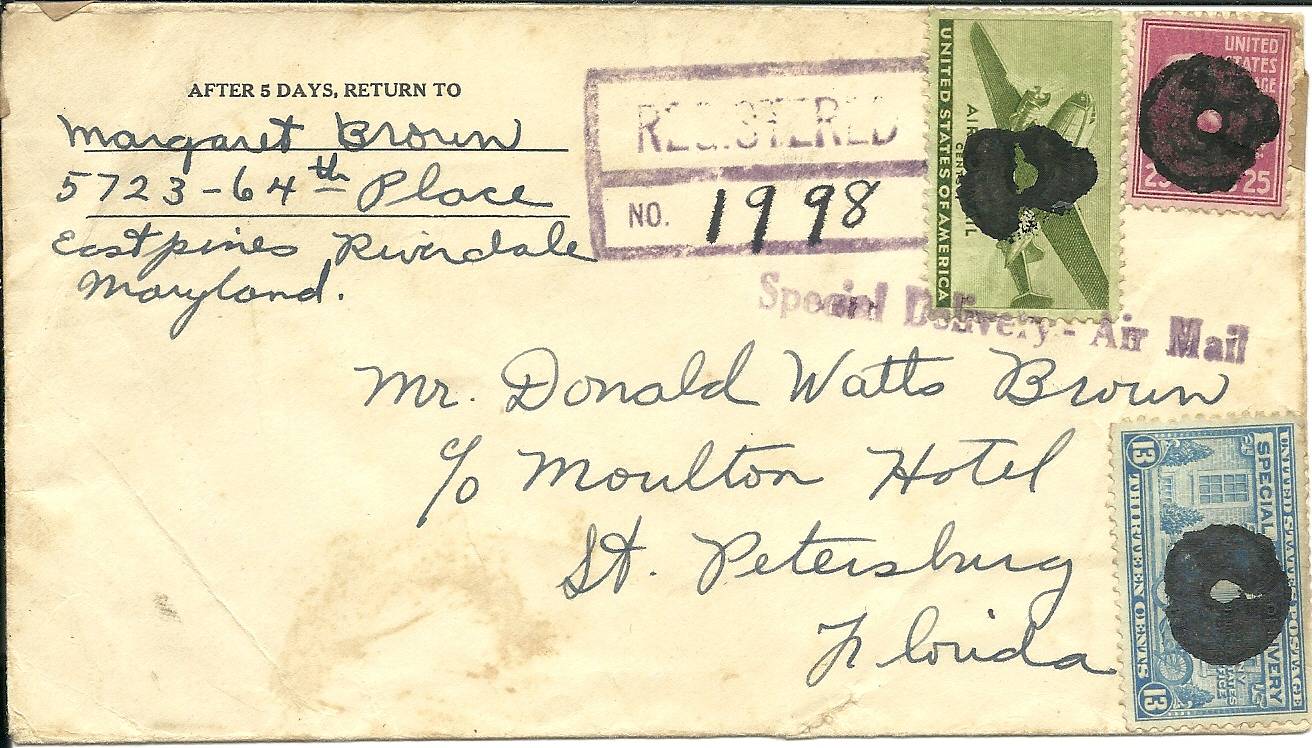 AFTER 5 DAYS, RETURN TO
Margaret Brown
5723-64th Place
Eastpines Riverdale
Maryland.
REGISTERED
NO. 1998
UNITED STATES OF AMERICA
AIR
CENT
UNITED
STATES
25
Special Delivery - Air Mail
Mr. Donald Watts Brown
c/o Moulton Hotel
St. Petersburg
Florida
UNITED STATES POSTAGE
SPECIAL DELIVERY
13 THIRTEEN CENTS 13